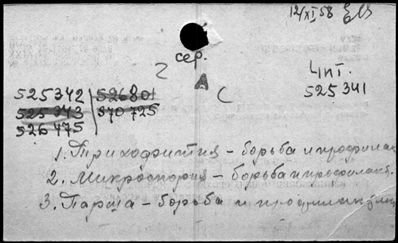 12/XI 58
сер.
2
А
С
Чит.
525341
525342 526801
525343 570725
526475
1. Трихофития - борьба и профилак
2. Микроспория - борьба и профилакт.
3. Парша - борьба и профилактика